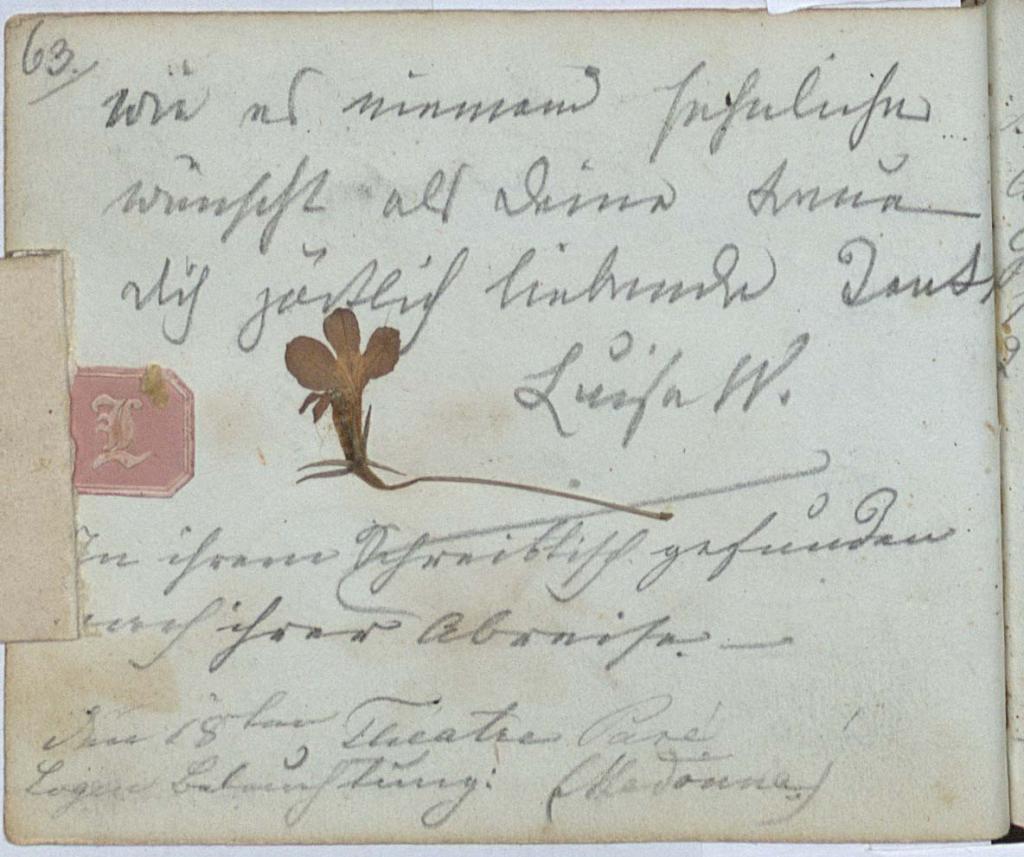 63.
wie es niemand sehnlicher
wünscht als Deine treue
dich zärtlich liebende Tante
Luise W.
L
In ihrem Schreibtisch gefunden
nach ihrer Abreise. —
den 18ten Theatre Paré
Logen Beleuchtung: (Madonna.)